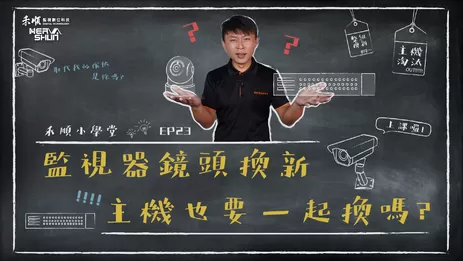 禾順 監視數位科技
HERSHUN
取代我的傢伙
是你嗎?
整組換新
主機淘汰
OUT!!!
禾順小學堂 EP23
上課囉!
監視器鏡頭換新
!!!!
主機也要一起換嗎?